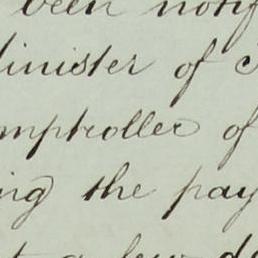 been notif
linister of
mptroller of
ing the pay